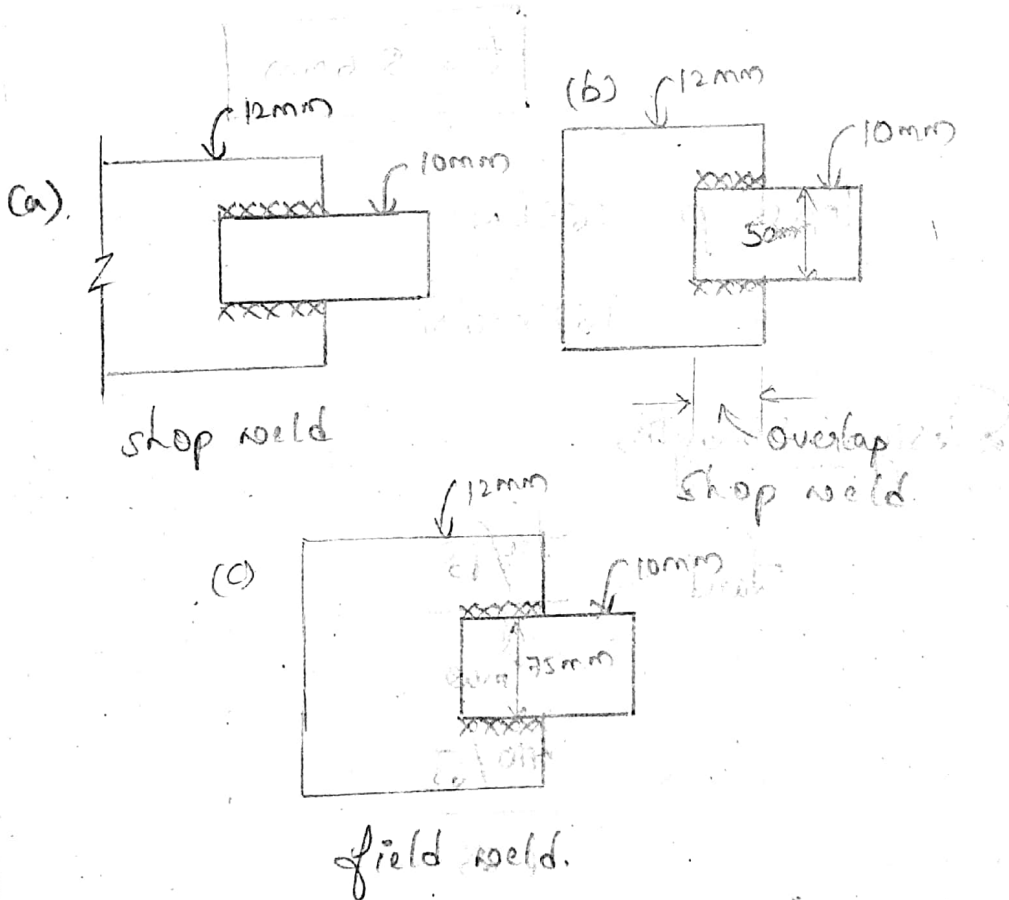 (a).
12mm
10mm
shop weld
(b)
12mm
10mm
50mm
overlap
shop weld.
(c)
12mm
10mm
75mm
field weld.